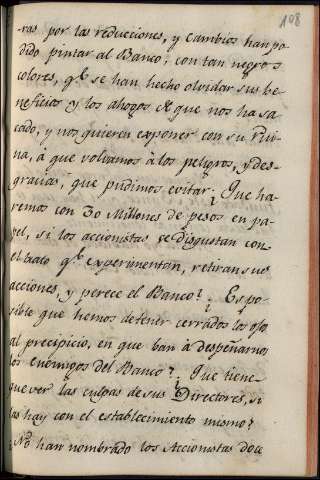 108
-ras por las reducciones, y cambios han po
dido pintar al Banco, con tan negros
colores, qᵉ se han hecho olvidar sus be
neficios y los ahogos de que nos ha sa
cado, y nos quieren exponer con su rui
na, à que volvamos à los peligros, y des-
gracias, que pudimos evitar ¿ Que ha
remos con 30 Millones de pesos en pa
pel, si los accionistas se disgustan con
el trato qᵉ experimentan, retiran sus
acciones, y perece el Banco? ¿ Es po
sible que hemos de tenir cerrados los ojos
al precipicio, en que ban à despeñarnos
los enemigos del Banco? ¿ Que tiene
que ver las culpas de sus Directores, si
las hay con el establecimiento mismo?
¿No han nombrado los Accionistas doce